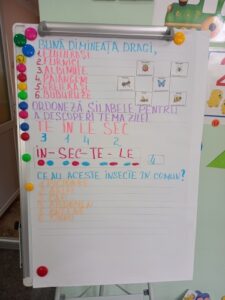 BUNĂ DIMINEAȚA DRAGI,
1. FLUTURAȘI
2. FURNICI
3. ALBINUȚE
4. PĂIANJENI
5. GREIERAȘI
6. BUBURUZE
ORDONEAZĂ SILABELE PENTRU
A DESCOPERI TEMA ZILEI
TE IN LE SEC
3 1 4 2
IN-SEC-TE-LE
4
CE AU ACESTE INSECTE ÎN COMUN?